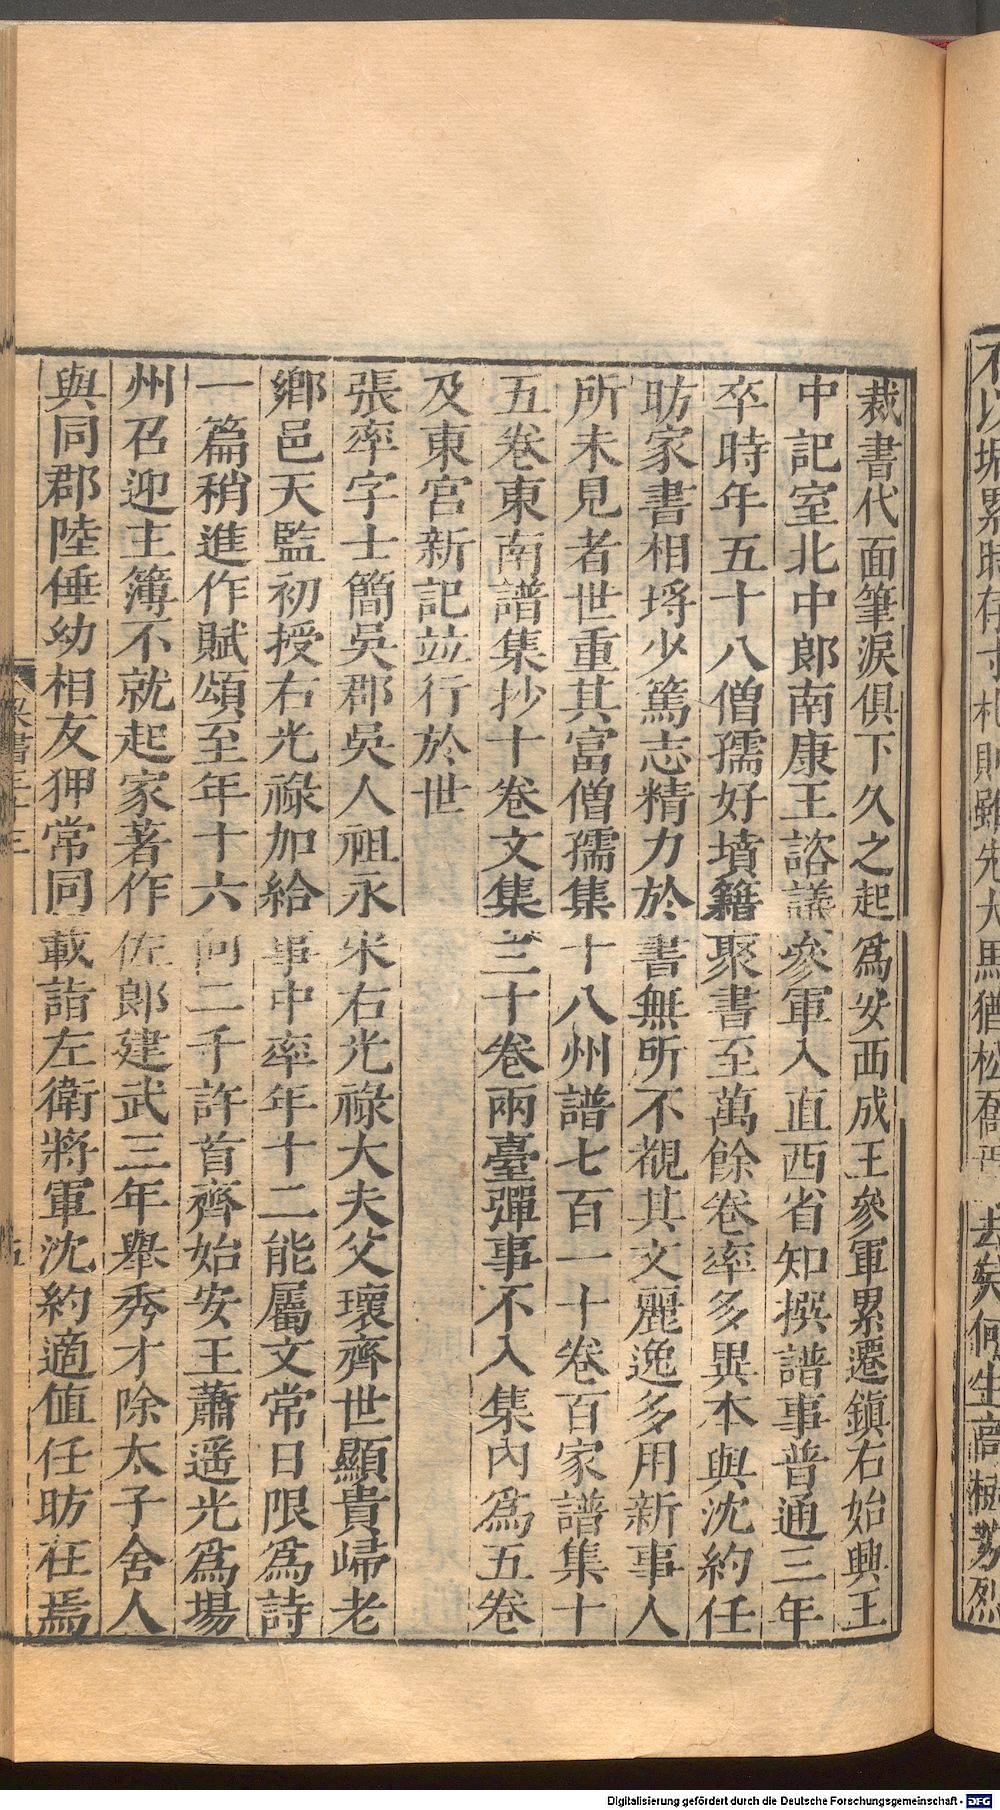 裁書代面筆淚俱下久之起爲安西成王參軍累遷鎮右始興王
中記室北中郎南康王諮議參軍入直西省知撰譜事普通三年
卒時年五十八僧孺好墳籍聚書至萬餘卷率多異本與沈約任
昉家書相埒少篤志精力於書無所不覩其文麗逸多用新事人
所未見者世重其富僧孺集十八州譜七百一十卷百家譜集十
五卷東南譜集抄十卷文集三十卷兩臺彈事不入集內爲五卷
及東宮新記竝行於世
張率字士簡吳郡吳人祖永宋右光祿大夫父瓌齊世顯貴歸老
鄉邑天監初授右光祿加給事中率年十二能屬文常日限爲詩
一篇稍進作賦頌至年十六向二千許首齊始安王蕭遥光爲揚
州召迎主簿不就起家著作佐郎建武三年舉秀才除太子舍人
與同郡陸倕幼相友狎常同載詣左衛將軍沈約適值任昉在焉
Digitalisierung gefördert durch die Deutsche Forschungsgemeinschaft - DFG